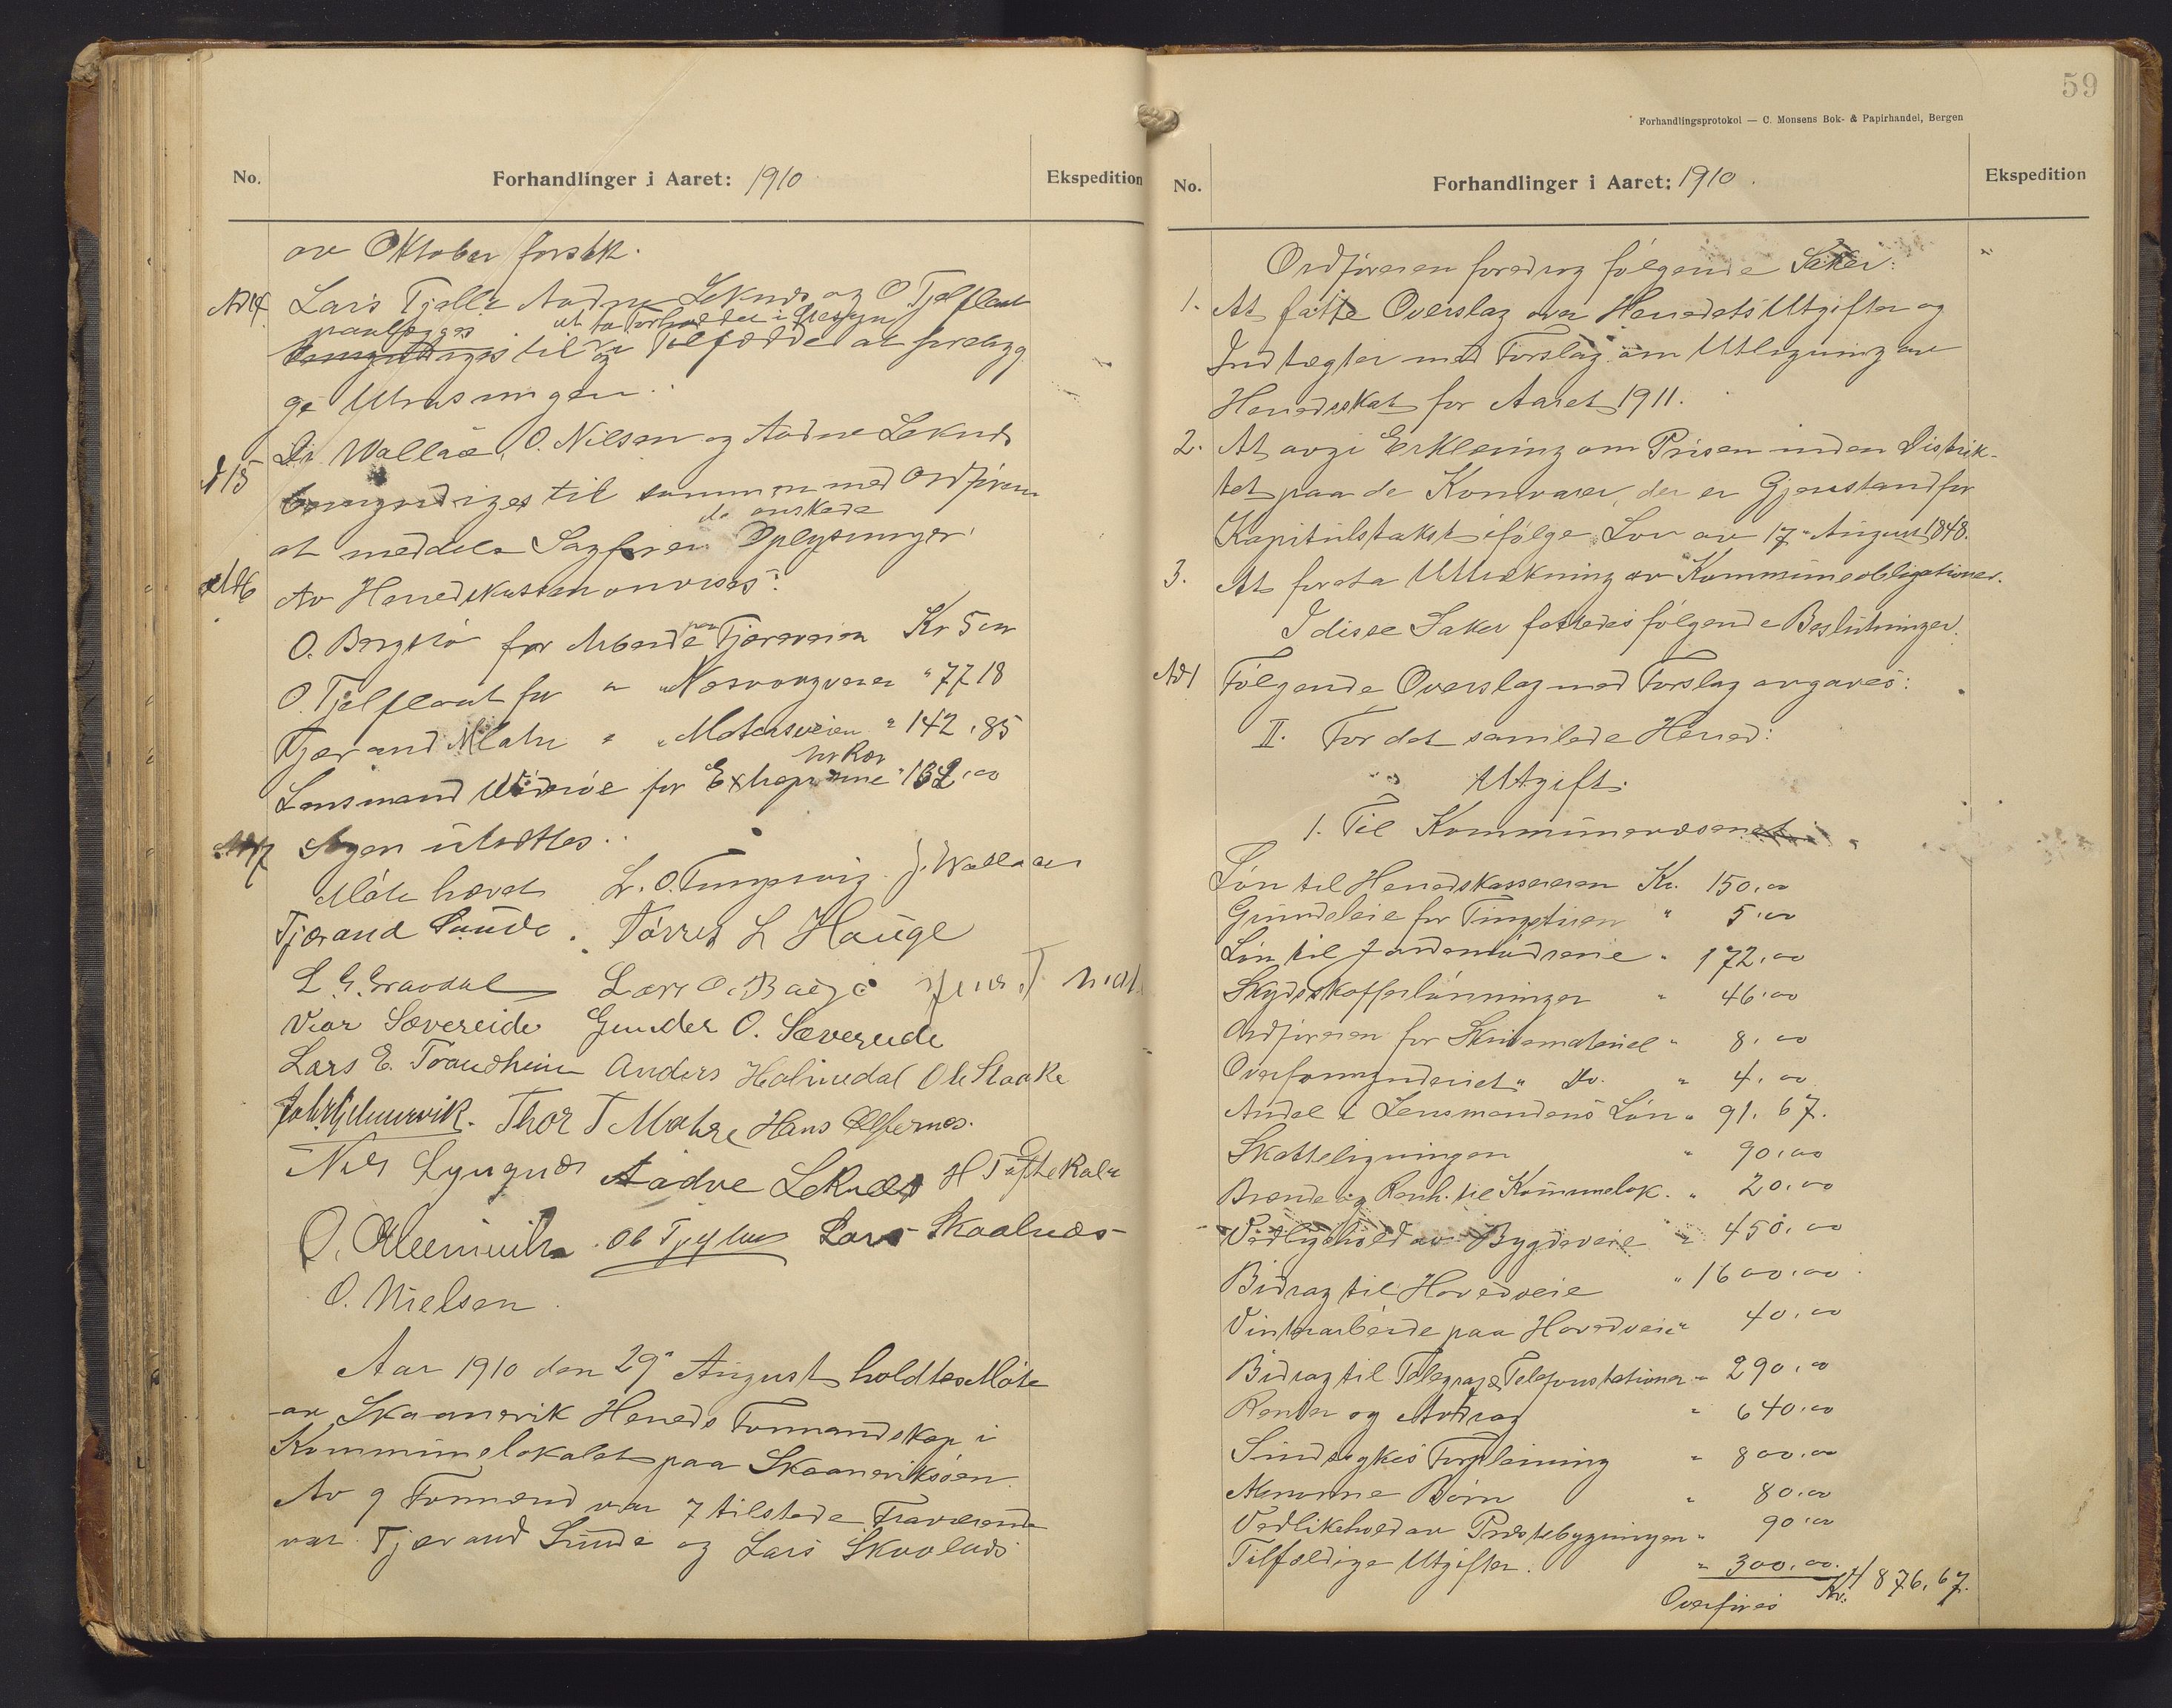 No.
Forhandlinger i Aaret: 1910
Ekspedition
av Oktober
Ad 14 Lars Tjelle Aadne Leknæs og O Tjelflaat
paalægges at ta Forholdet i Øiesyn
bemyndiges til og i Tilfælde at forebyg
ge Utrasningen.
d 15 Dr. Wallaa, O. Nilsen og Aadne Leknæs
bemyndiges til sammen med Ordføreren
de ønskede
at meddele Sagføreren Oplysninger.
Ad 16 Av Heredskassen anvises:
O. Bergstø for Arbeide paa Tjeraveien Kr 5.00
O. Tjelflaat for " " Næsvangveien " 77 18
Tjerand Matre " " Matersveien " 142.85
Lensmand for 132.00
Ad 17 Sagen utsættes.
Møte hævet L. O. Tungesvig. J. Wallaa
Tjerand Sunde. Tørres L Hauge
L. G. Gravdal Lars O. Bærø
Vier Sævereide Gunder O. Sævereide
Lars E. Traudheim Anders Holmedal Ole Staake
Thor T Matre Hans Ølfernes.
Nils Lyngnæs Aadne Leknæs H Toftekalv
O. Ob Tjelflaat Lars Skaalnæs
O. Nielsen.
Aar 1910 den 29" August holdtes Møte
av Skaanevik Hereds Formandskap i
Kommunelokalet paa Skaaneviksøen.
Av 9 Formænd var 7 tilstede. Fraværende
var Tjerand Sunde og Lars Skaalnæs
59
Forhandlingsprotokol — C. Monsens Bok- & Papirhandel, Bergen
No.
Forhandlinger i Aaret: 1910.
Ekspedition
Ordføreren foredrog følgende Saker:
1. At fatte Overslag over Heredets Utgifter og
Indtægter med Forslag om Utligning av
Heredsskat for Aaret 1911.
2. At avgi Erklæring om Prisen inden Distrik-
tet paa de Kornvarer, der er Gjenstand for
Kapitulstakst ifølge Lov av 17" August 1848.
3. At foreta Uttrækning av Kommuneobligationer.
I disse Saker fattedes følgende Beslutninger.
Ad 1 Følgende Overslag med Forslag avgaves:
II. For det samlede Hered:
Utgift.
1. Til Kommunevæsenet
Løn til Heredskassereren Kr. 150.00
Grundleie for Tingstuen " 5.00
Løn til Jordemødrene " 172.00
Skydsskafferlønninger " 46.00
Ordføreren for Skrivemateriel " 8.00
Overformynderiet " do. " 4.00
Andel i Lensmandens Løn " 91.67.
Skatteligningen " 90.00
Brænde og Renh. til Kommunelok. " 20.00
Vedligehold av Bygdeveie " 450.00
Bidrag til Hovedveie " 1600.00
Vinterarbeide paa Hovedveie " 40.00
Bidrag til Telegraf & Telefonstationer " 290.00
Renter og Avdrag " 640.00
Sindsykes Forpleining " 800.00
Abnorme Børn " 80.00
Vedlikehold av Prestebygningen " 90.00
Tilfældige Utgifter. " 300.00.
Overføres Kr. 4876.67.